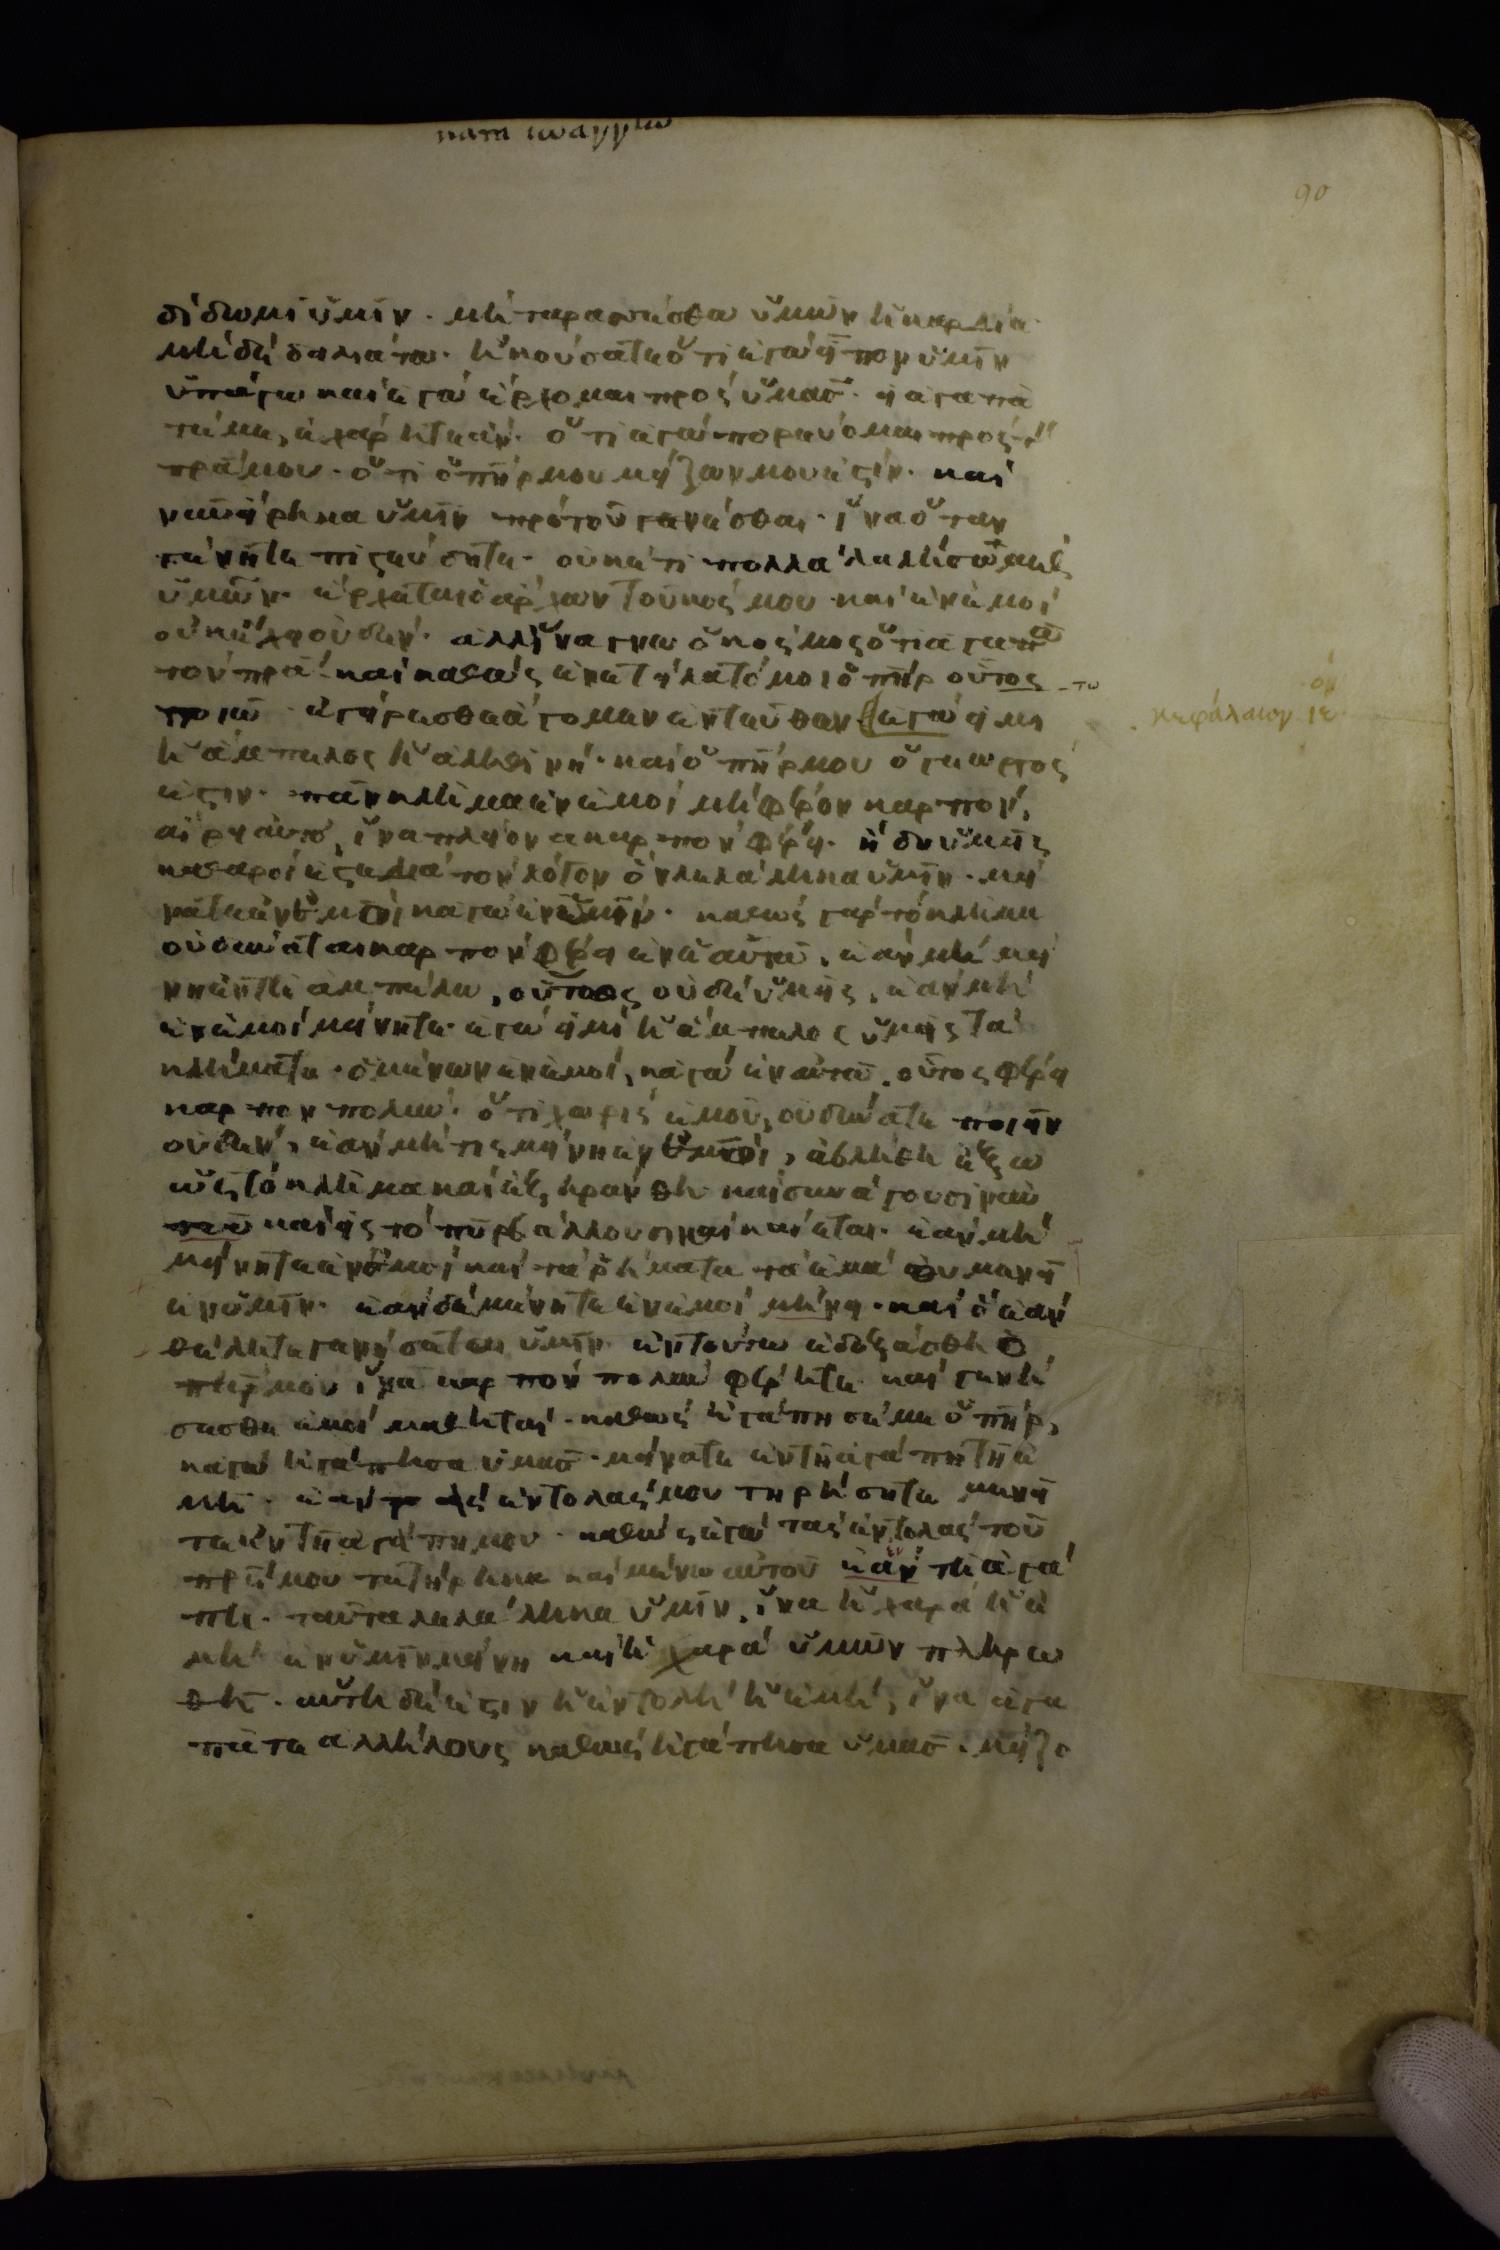 κατα ιωαννην
90
δίδωμι ὑμῖν· μὴ ταρασσέσθω ὑμῶν ἡ καρδία·
μὴ δὲ δειλιάτω· ἠκούσατε ὅτι ἐγὼ εἶπον ὑμῖν
ὑπάγω καὶ ἐγὼ ἔρχομαι πρὸς ὑμᾶς· εἰ ἀγαπᾶ
τέ με, ἐχάρητε ἄν· ὅτι ἐγὼ πορεύομαι πρὸς τὸν
πρα μου· ὅτι ὁ πηρ μου μείζων μου ἐστίν· καὶ
νῦν εἴρηκα ὑμῖν πρὸ τοῦ γενέσθαι· ἵνα ὅταν
γένηται πιστεύσητε· οὐκ έτι πολλὰ λαλήσω μεθ
ὑμῶν· ἔρχεται ὁ ἄρχων τοῦ κόσμου· καὶ ἐν ἐμοὶ
οὐκ ἔχει οὐδέν· ἀλλ ἵνα γνῶ ὁ κόσμος ὅτι ἀγαπῶ
τὸν πρα· καὶ καθὼς ἐνετείλατό μοι ὁ πηρ οὕτος
τω
ποιῶ· ἐγείρεσθε ἄγομεν ἐντεῦθεν ἐγώ εἰμι
κεφάλαιον ιε
ἡ ἄμπελος ἡ ἀληθινή· καὶ ὁ πηρ μου ὁ γεωργός
ἐστιν· πᾶν κλῆμα ἐν ἐμοὶ μὴ φέρον καρπόν,
αἴρει αὐτό, ἵνα πλείονα καρπὸν φέρη· ἤδη ὑμεῖς
καθαροί ἐστε διὰ τὸν λόγον ὃν λελάληκα ὑμῖν· μεί
νατε ἐν ἐμοὶ κἀγὼ ἐν ὑμῖν· καθὼς γὰρ τὸ κλῆμα
οὐ δύναται καρπὸν φέρει ἐν ἑαυτῶ, ἐὰν μὴ μεί
νη ἐν τῆ ἀμπέλω, οὕτως οὐδὲ ὑμεῖς, ἐὰν μὴ
ἐν ἐμοὶ μείνητε· ἐγώ εἰμι ἡ ἄμπελος ὑμεῖς τὰ
κλήματα· ὁ μένων ἐν ἐμοί, κἀγὼ ἐν αὐτῶ, οὕτος φέρει
καρπὸν πολύν· ὅτι χωρὶς ἐμοῦ, οὐ δύνατε ποιεῖν
οὐδέν, ἐὰν μή τις μείνη ἐν ἐμοί, ἐβλήθη ἔξω
ὡς τὸ κλῆμα καὶ ἐξηράνθη καὶ συνάγουσιν αὐ
τὸ καὶ εἰς τὸ πῦρ βάλλουσιν καὶ καίεται· ἐὰν μὴ
μείνητε ἐν ἐμοὶ καὶ τὰ ῥήματα τὰ ἐμὰ οὐ μενεῖ
ἐν ὑμῖν· ἐὰν δὲ μένητε ἐν ἐμοὶ μείνει· καὶ ὃ ἐὰν
θέλητε γενήσεται ὑμῖν· ἐν τούτω ἐδοξάσθη ὁ
πηρ μου ἵνα καρπὸν πολὺν φέρητε καὶ γενή
σεσθε ἐμοὶ μαθηταί· καθὼς ἠγάπησέ με ὁ πηρ,
κἀγὼ ἠγάπησα ὑμᾶς· μείνατε ἐν τῆ ἀγάπη τῆ ἐ
μῆ· ἐὰν τὰς ἐντολάς μου τηρήσητε μενεῖ
τε ἐν τῆ ἀγάπη μου· καθὼς ἐγὼ τὰς ἐντολὰς τοῦ
πρς μου τετήρηκα καὶ μένω αὐτοῦ ἐὰν τῆ ἀγά
πη· ταῦτα λελάληκα ὑμῖν, ἵνα ἡ χαρὰ ἡ ἐ
μὴ ἐν ὑμῖν μείνη καὶ ἡ χαρὰ ὑμῶν πληρω
θῆ· αὕτη δέ ἐστιν ἡ ἐντολὴ ἡ ἐμή, ἵνα ἀγα
πᾶτε ἀλλήλους καθὼς ἠγάπησα ὑμᾶς· μείζο